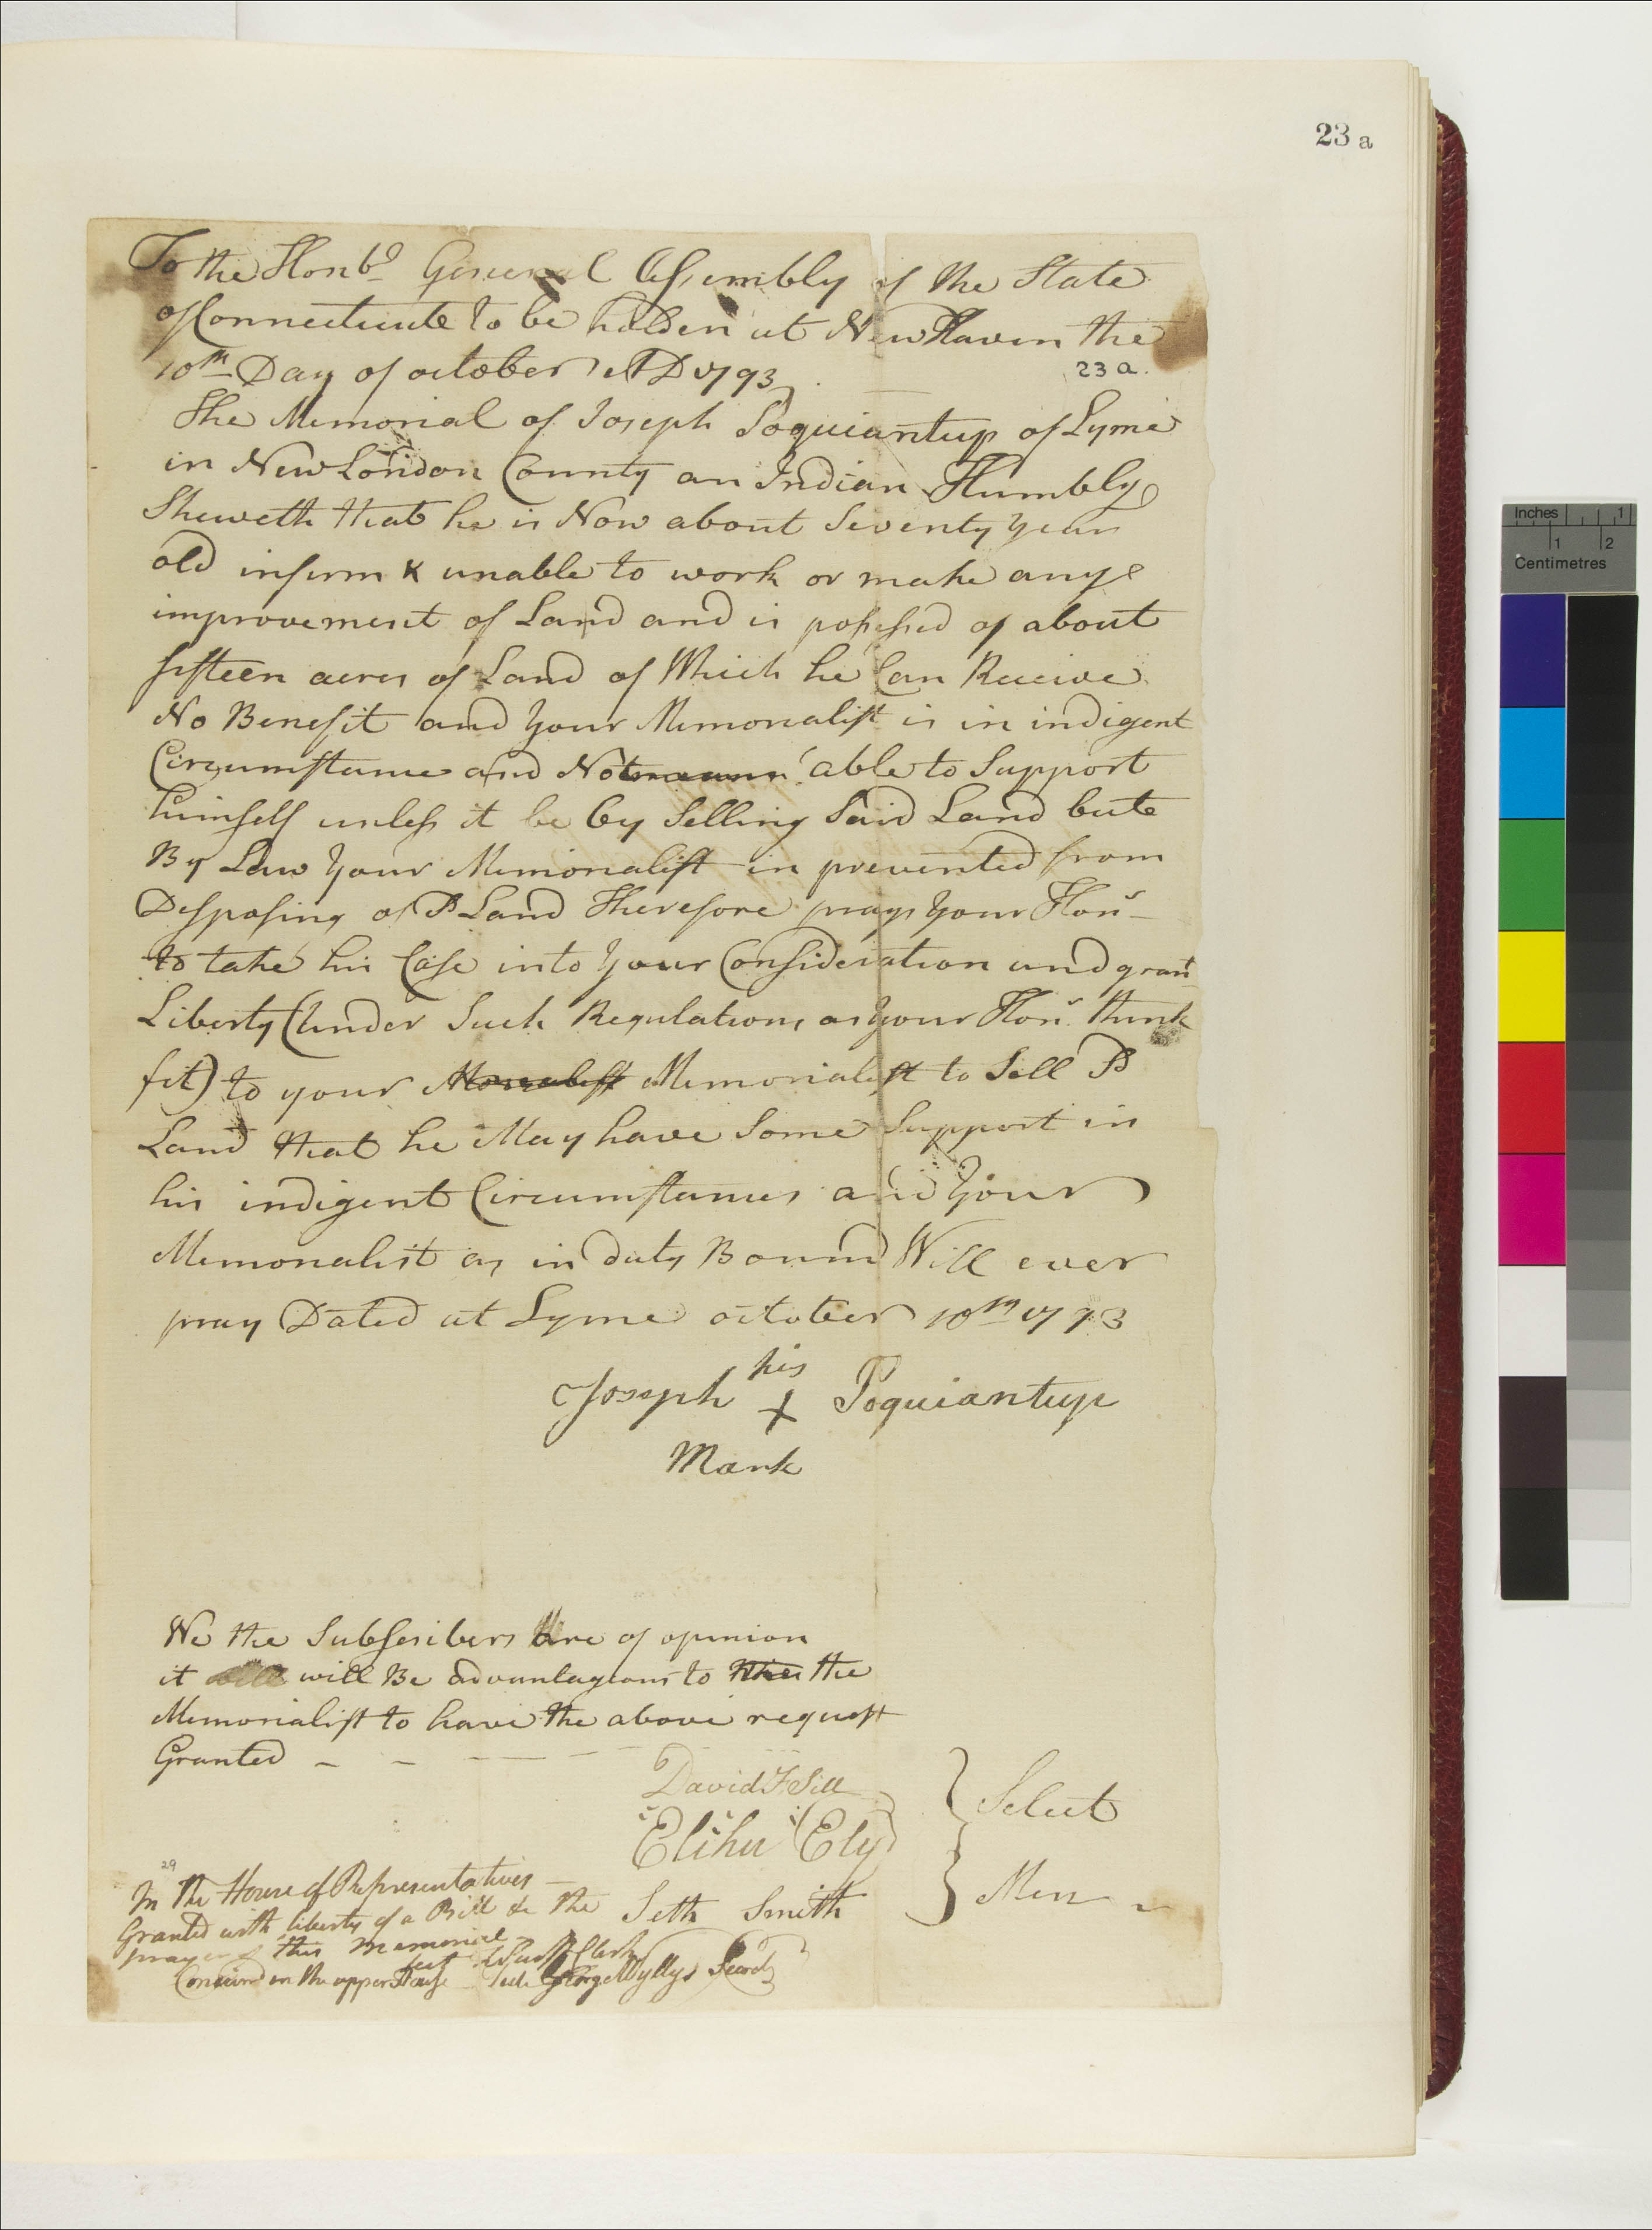 23 a
To the Honbl General Assembly of the State
of Connecticute to be holden at New Haven the
10th Day of october AD 1793
23 a.
The Memorial of Joseph Poquiantup of Lyme
in New London County an Indian Humbly
Sheweth that he is Now about Seventy years
old infirm & unable to work or make any
improvement of Land and is possessed of about
fifteen acres of Land of Which he Can Receive
No Benefit and Your Memorialist is in indigent
Circumstances and Not able to Support
himself unless it be by Selling Said Land but
By Law Your Memorialist is prevented from
Desposing of sd Land Therefore prays Your Honrs
to take his Case into Your Consideration and grant
Liberty (Under Such Regulations as Your Honrs think
fit) to your Memorialist to Sell sd
Land that he May have Some Support in
his indigent Circumstances and Your
Memorialist as in duty Bound Will ever
pray Dated at Lyme october 10th 1793
his
Joseph X Poquiantup
Mark
We the Subscribers are of opinion
it will Be advantageous to the
Memorialist to have the above request
Granted
David F Sill
Elihu Ely
Seth Smith
Select
Men
29
In the House of Representatives
Granted with liberty of a Bill &c the
prayer of this memorial
Test Clerk
Concurrd in the upper House
Test George Wyllys Secrety